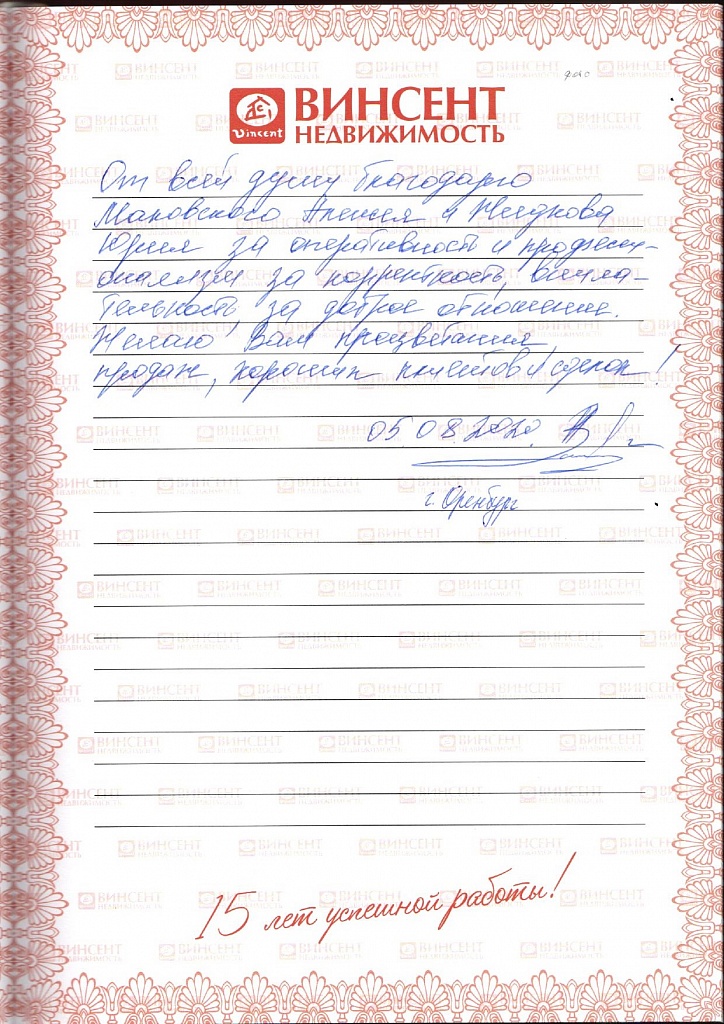 Vincent
ВИНСЕНТ
НЕДВИЖИМОСТЬ
От всей души благодарю
Маковского Алексея и Жидкова
Юрия за оперативность и професси-
онализм за корректность, внима-
тельность, за доброе отношение.
Желаю Вам процветания,
продаж, хороших клиентов и сделок!
05.08.2020.
г. Оренбург
15 лет успешной работы!